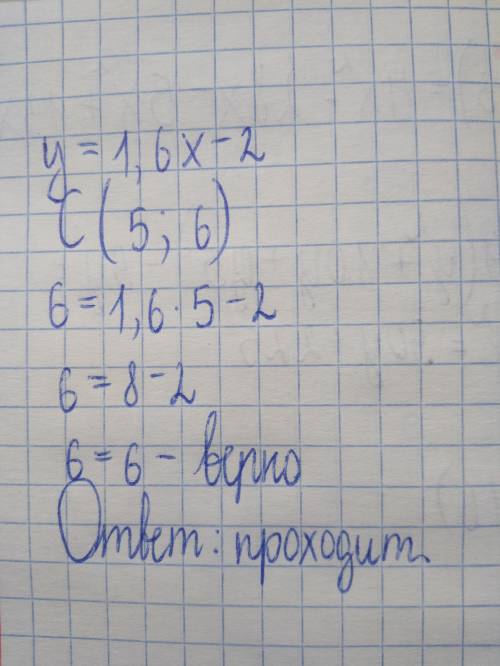 y = 1,6x - 2
C (5; 6)
6 = 1,6 · 5 - 2
6 = 8 - 2
6 = 6 - верно
Ответ: проходит.